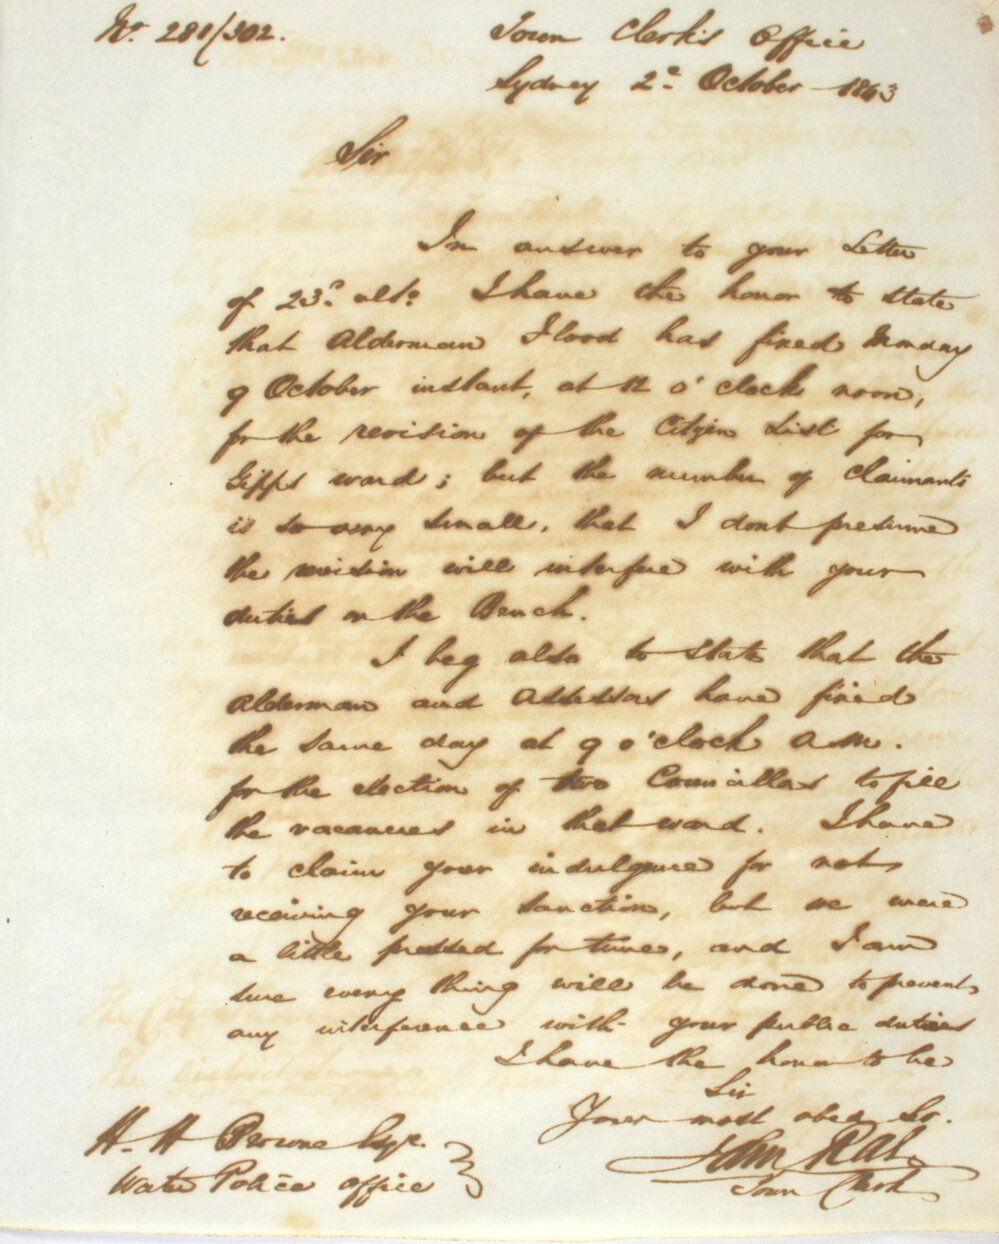 No. 281/302.
Town Clerk's Office
Sydney 2d October 1843
Sir
In answer to your Letter
of 23d ulto. I have the honor to state
that Alderman Flood has fixed Monday
9 October instant, at 12 o'clock noon,
for the revision of the Citizen List for
Gipps ward; but the number of Claimants
is so very small, that I dont presume
the revision will interfere with your
duties on the Bench.
I beg also to state that the
Alderman and Assessors have fixed
the same day at 9 o'clock A.M.
for the election of two Councillors to fill
the vacancies in that ward. I have
to claim your indulgence for not
receiving your sanction, but we were
a little pressed for time, and I am
sure every thing will be done to prevent
any interference with your public duties
I have the honor to be
Sir
Your most obed. Sr.
H. H. Browne Esqr.
Water Police office
John Rae
Town Clerk